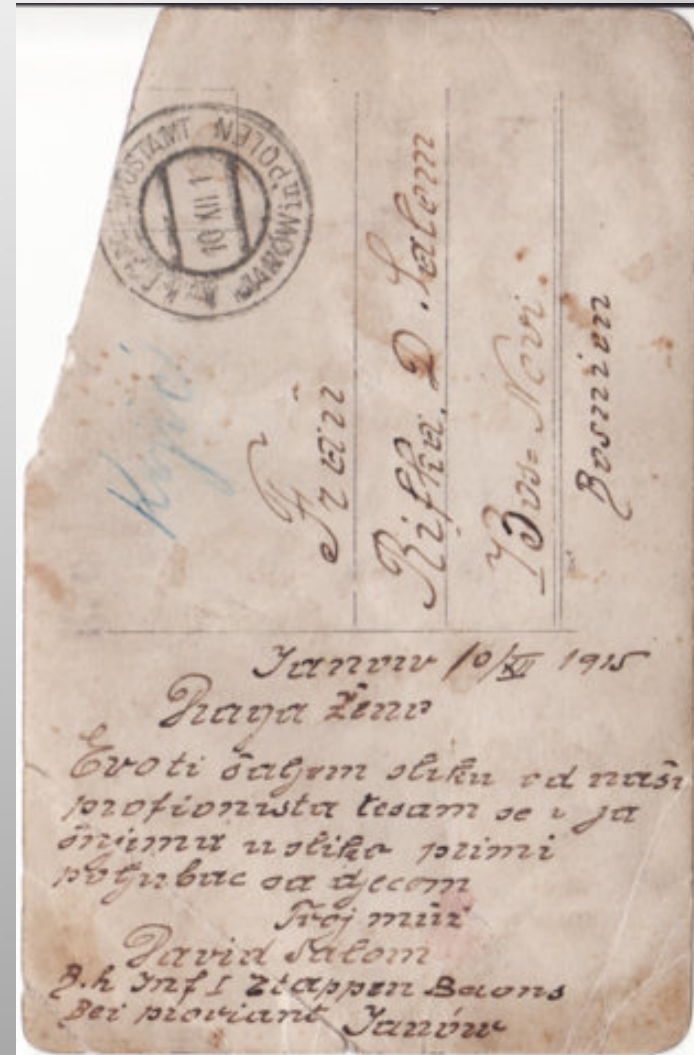 POSTAMT
JANOW in POLEN
10 XII 1
Frau
Rifka. D. Salom
Bos= Novi.
Bosnien
Janow 10/XII 1915
Draga Ženo
Evo ti šaljem sliku od naši
profionista tesam se i ja
šnjima usliko primi
poljubac sa djecom
Tvoj muž
David Salom
B.h Inf I Etappen Baons
Bei proviant Janów